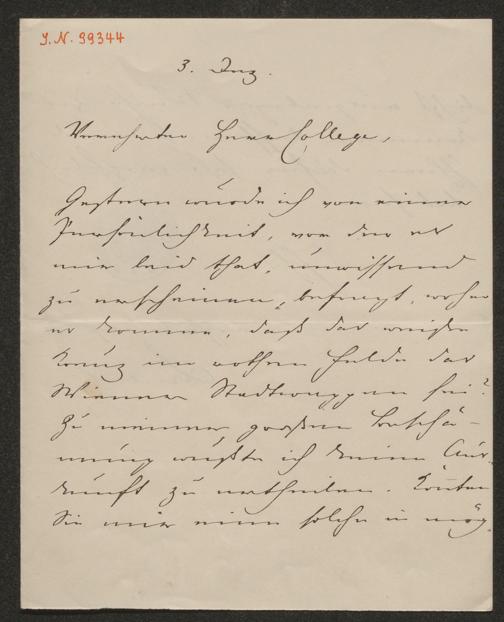 J.N. 99344
3. Dez.
Verehrter Herr College,
Gestern wurde ich von einer
Persönlichkeit, vor der es
mir leid that, unwissend
zu erscheinen, befragt, woher
es komme, daß das weiße
Kreuz im rothen Felde das
Wiener Stadtwappen sei?
Zu meiner großen Beschä-
mung wußte ich keine Aus-
kunft zu ertheilen. Könnten
Sie mir eine solche in mög-